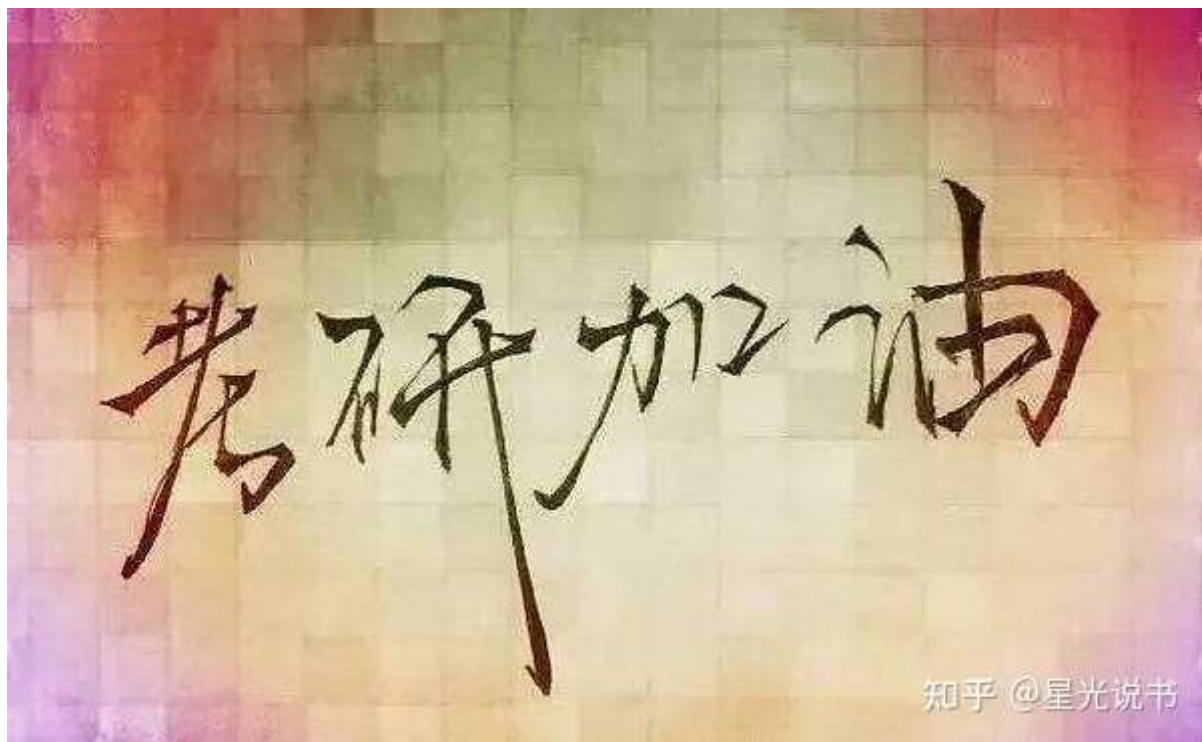 考研加油
知乎 @星光说书